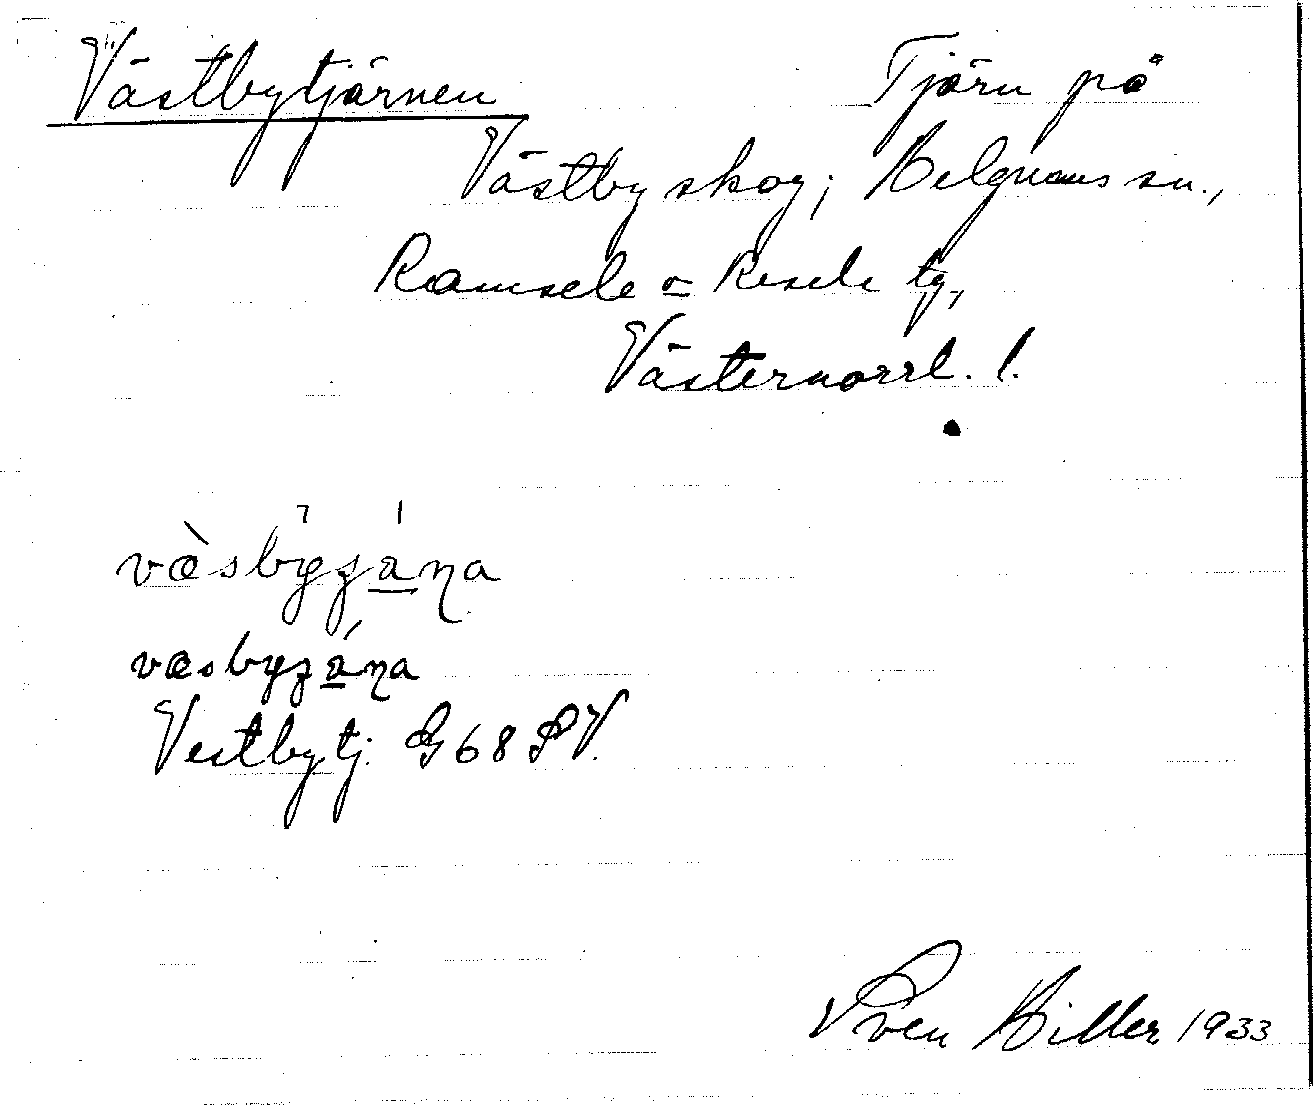 Västbytjärnen Tjärn på
Västby skog; Helgums sn.,
Ramsele o Resele tg.,
Västernorrl. l.
væ̀sbygána
væsbygána
Vestbytj. G 68 SV.
Sven Hiller 1933